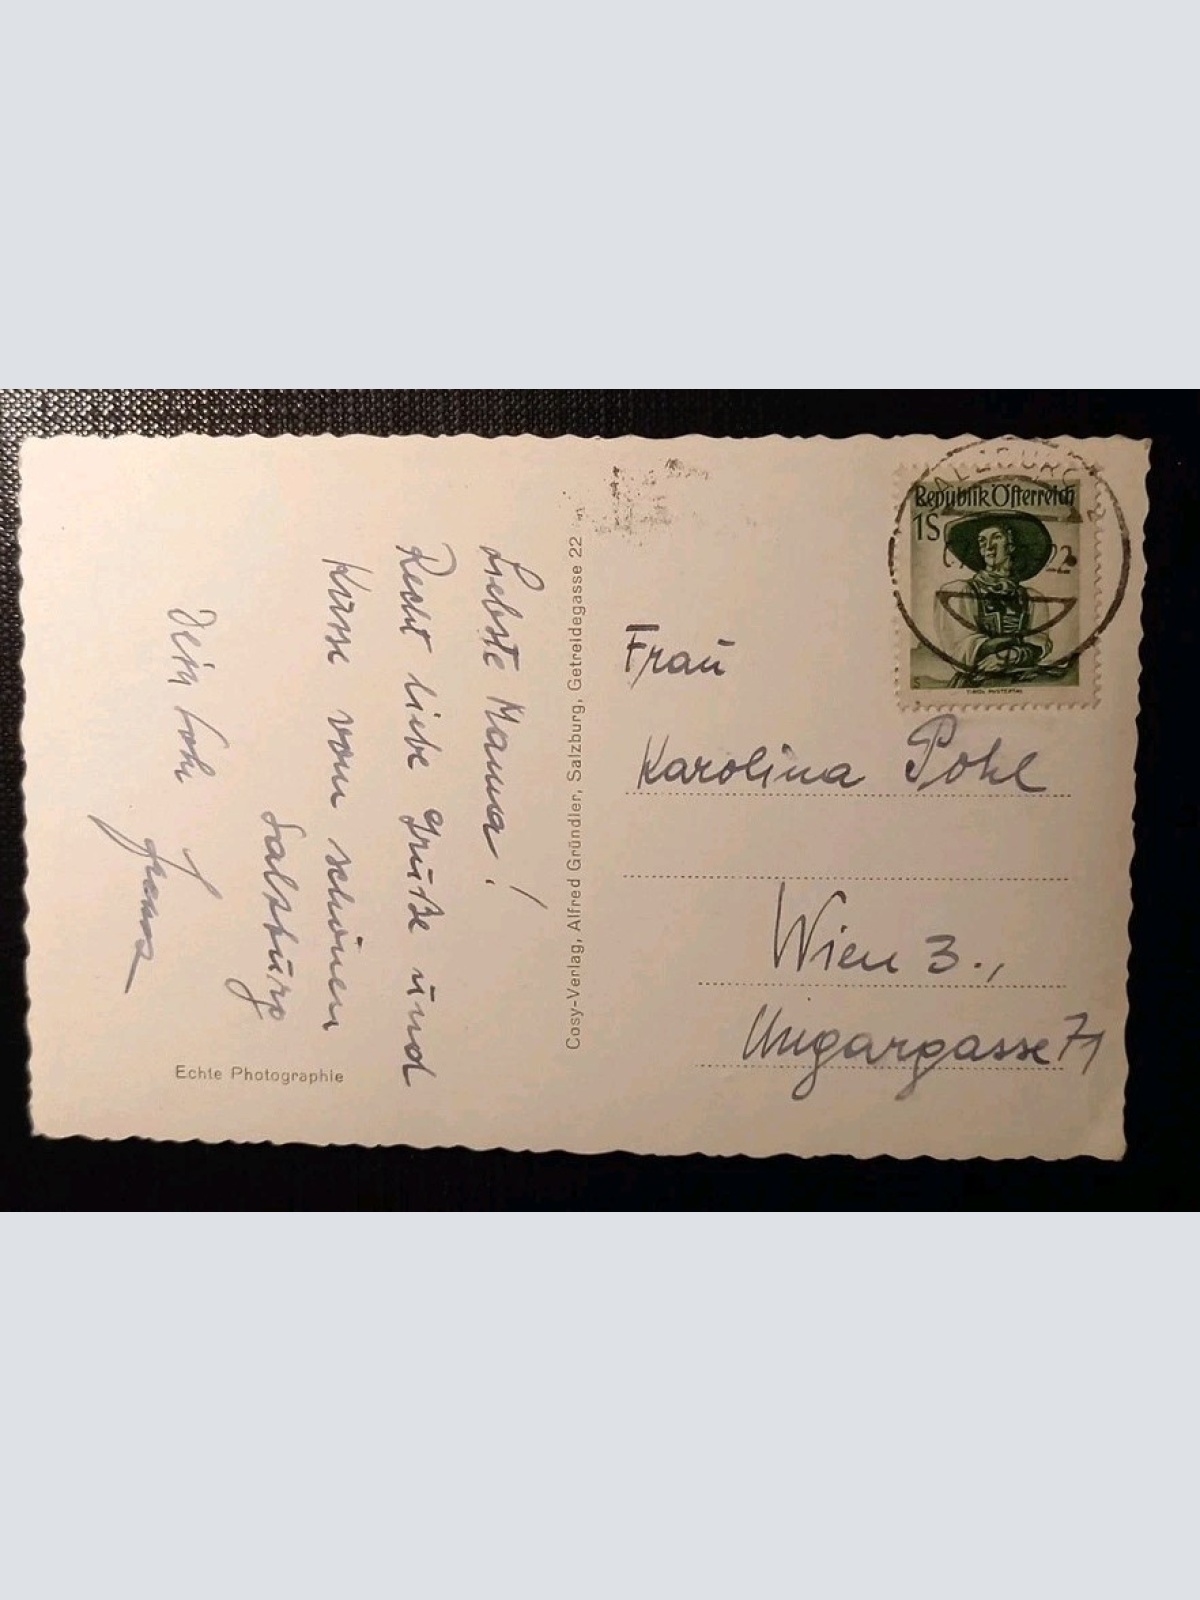 Liebste Mama!
Recht liebe Grüße und
Küsse vom schönen
Salzburg
Dein Sohn
Franz
Echte Photographie
Cosy-Verlag, Alfred Gründler, Salzburg, Getreidegasse 22
SALZBURG 2
22
Republik Österreich
1S
TIROL PUSTERTAL
Frau
Karolina Pohl
Wien 3.,
Ungargasse 71